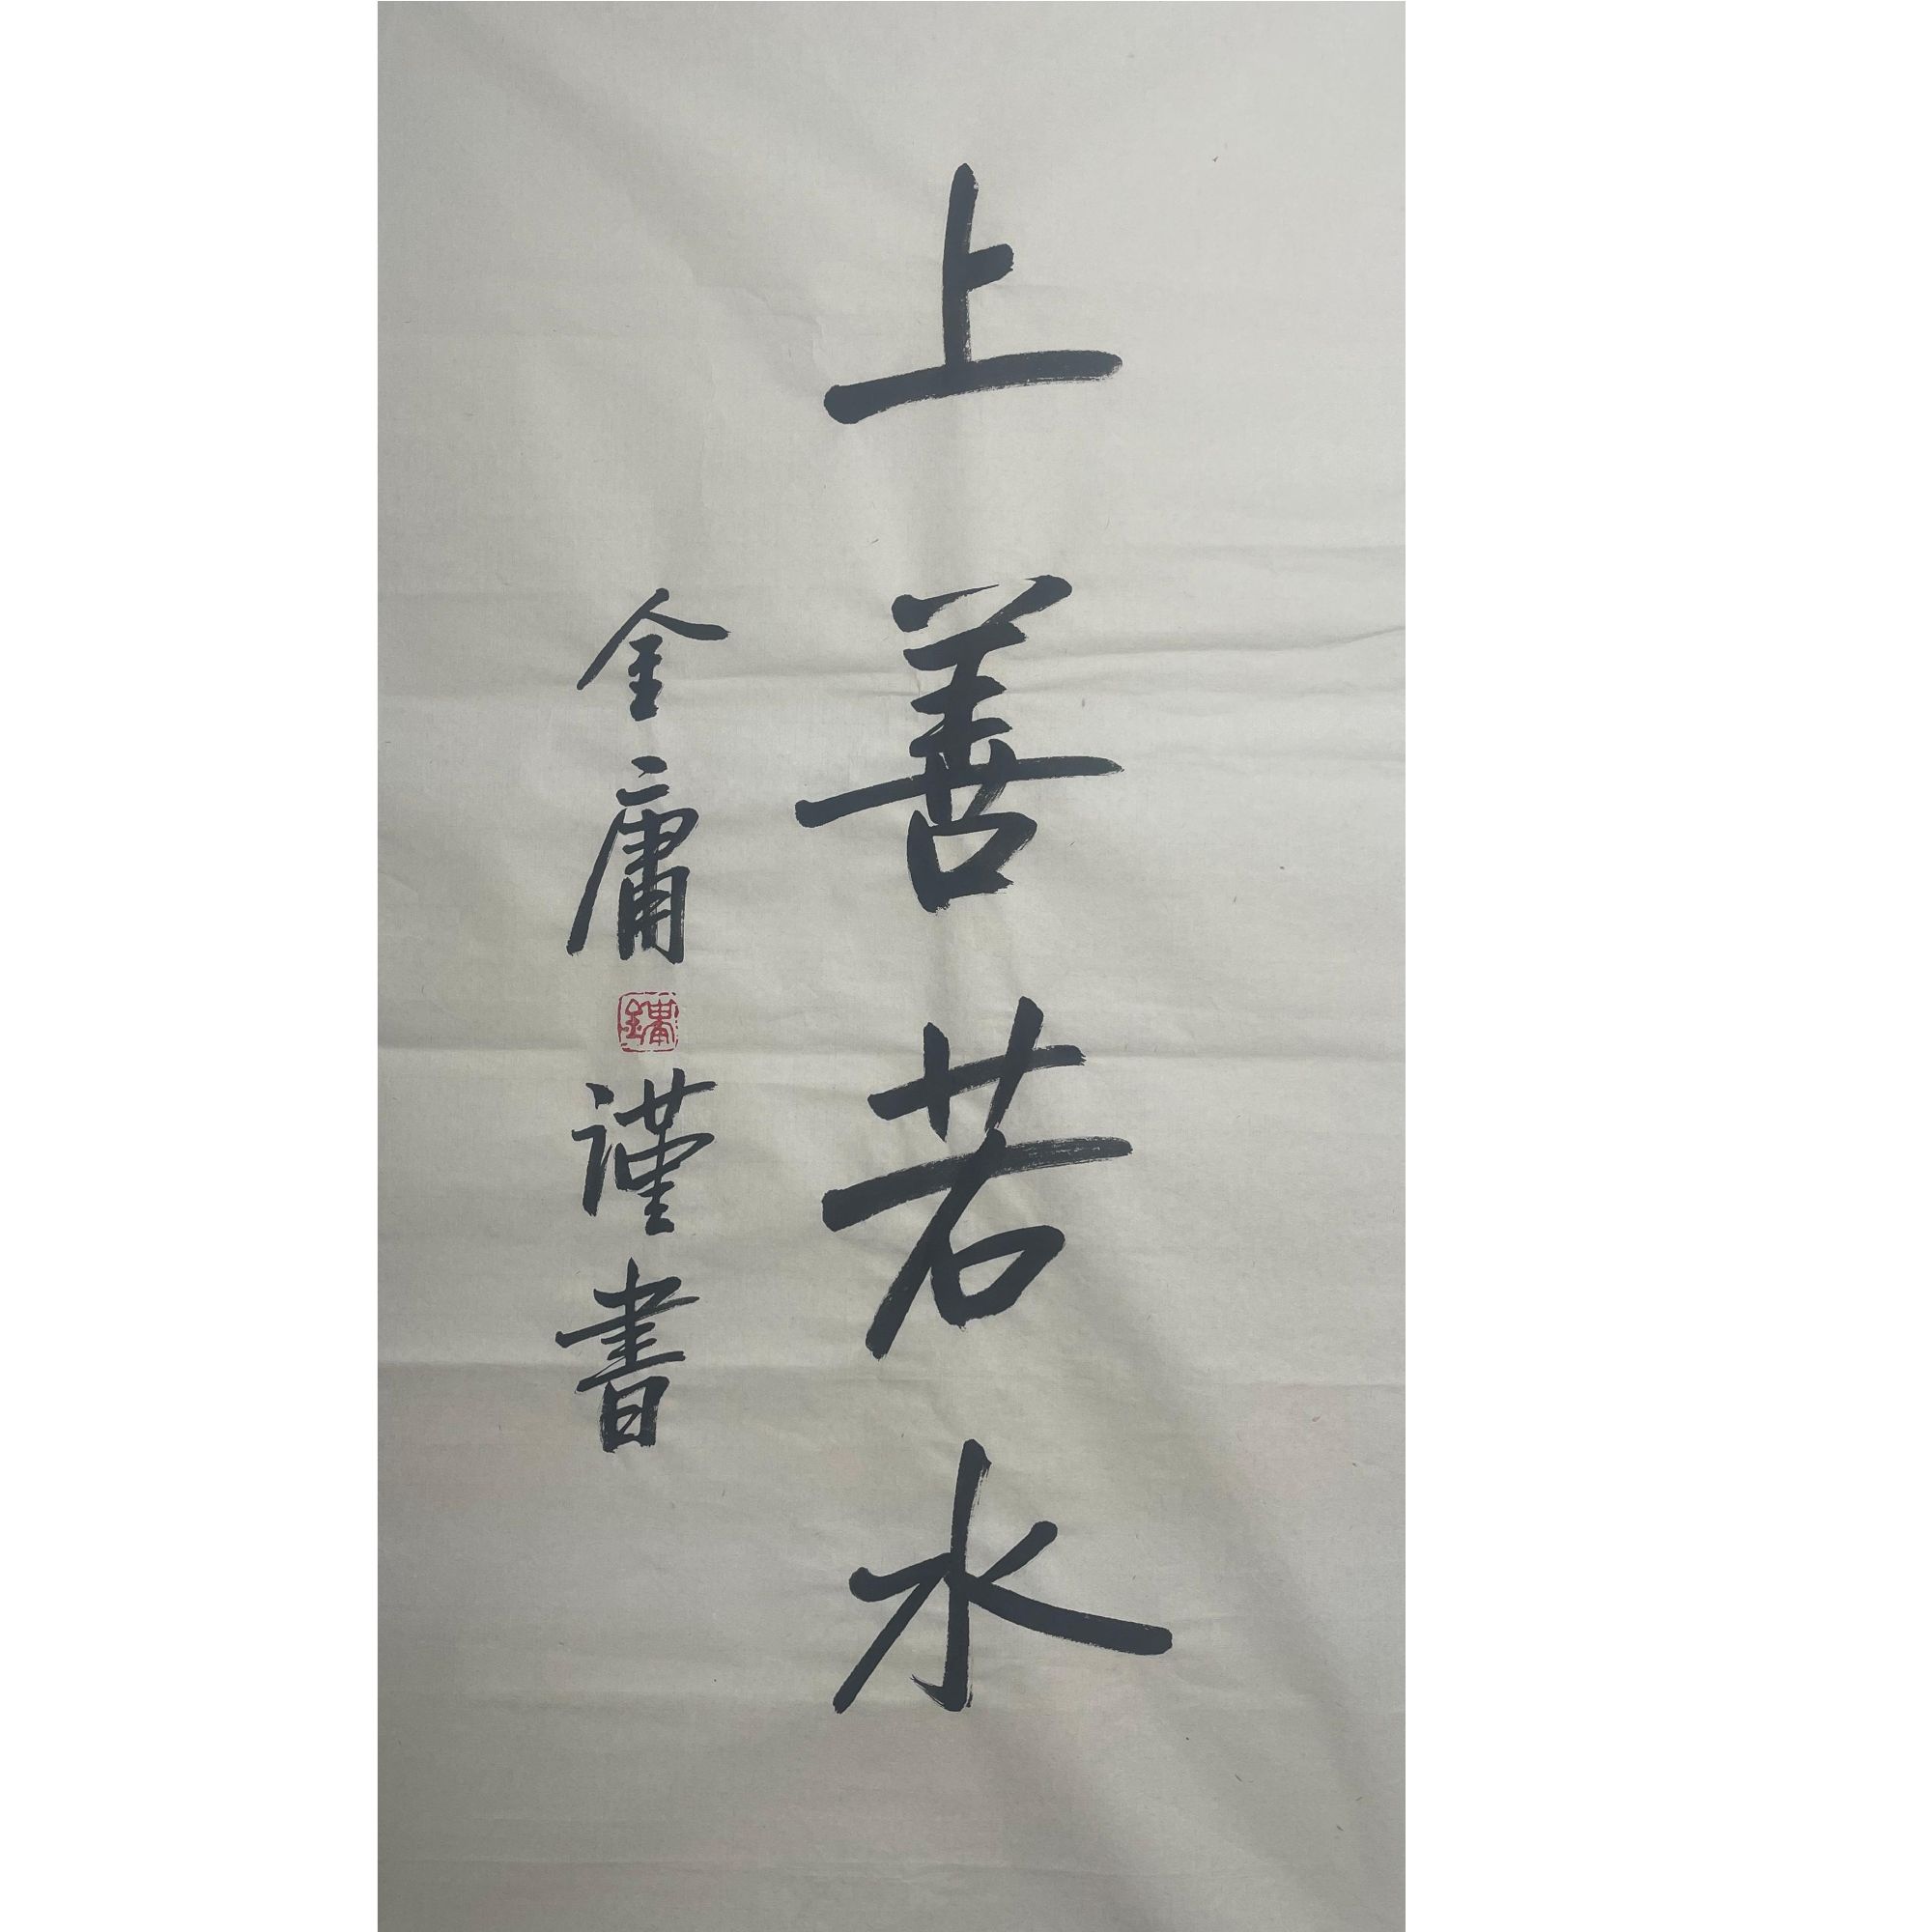 上善若水
金庸
謹書